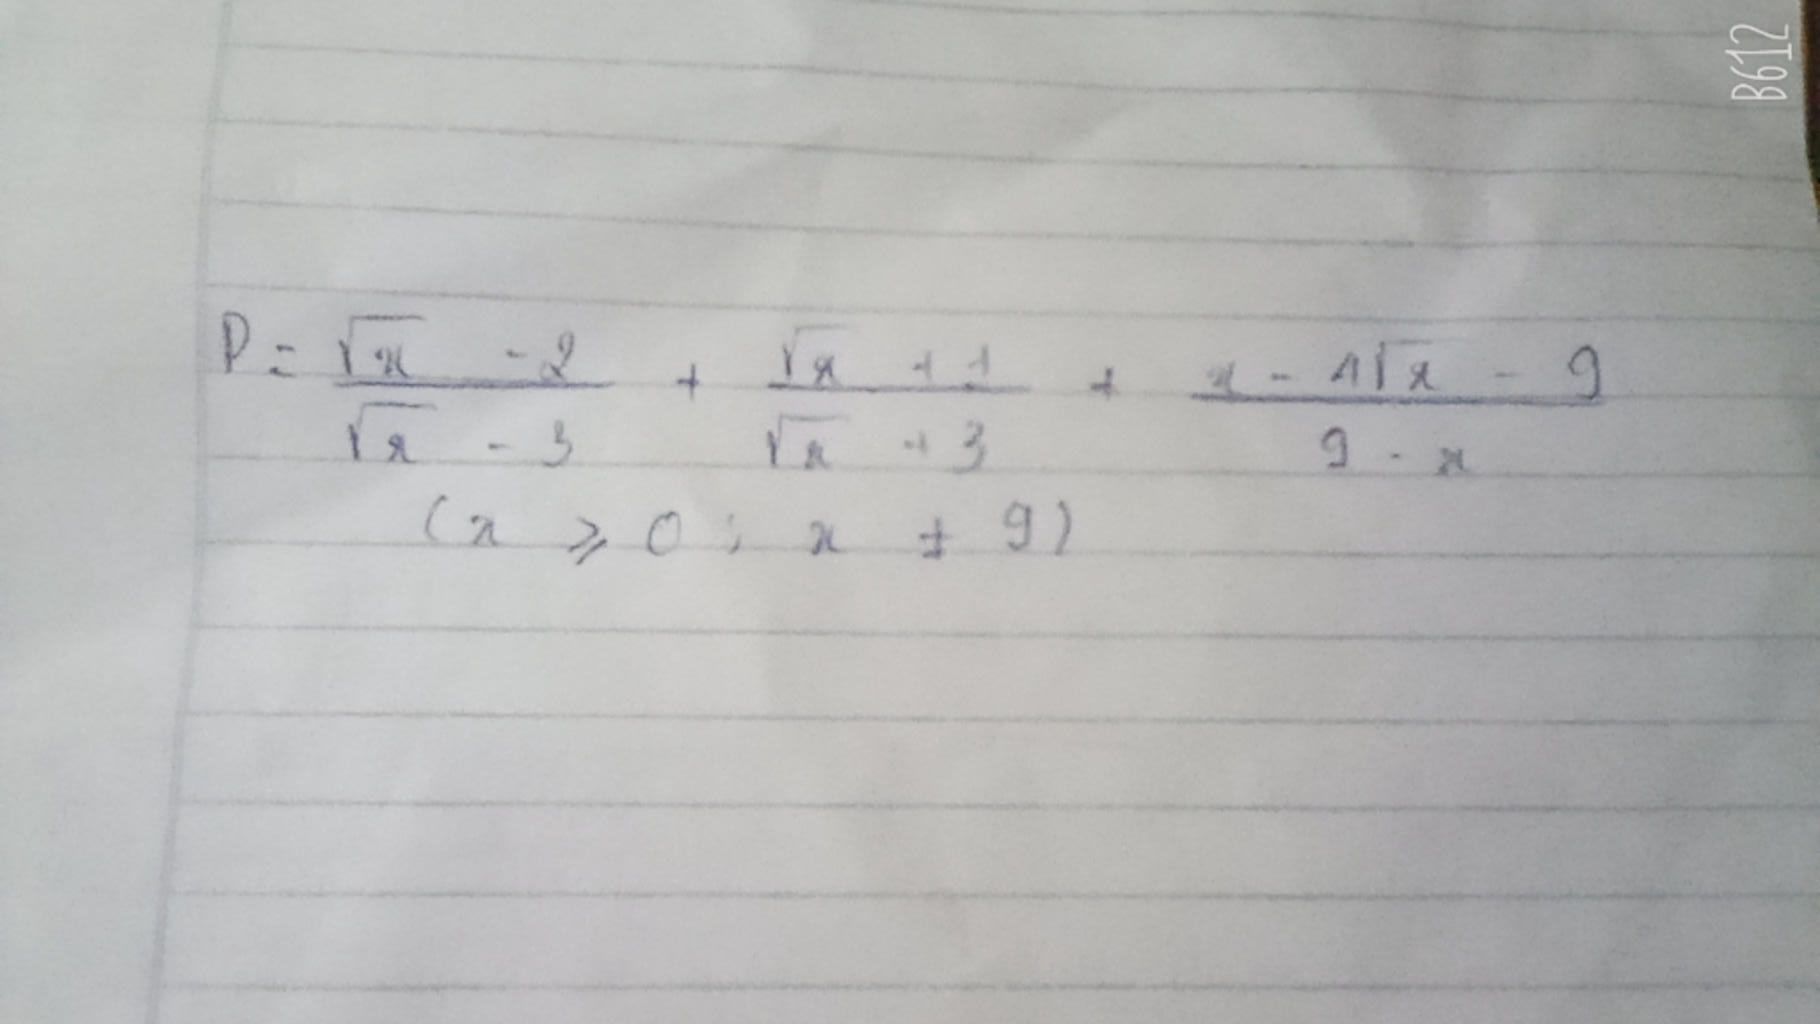 B612
P = \frac{\sqrt{x} - 2}{\sqrt{x} - 3} + \frac{\sqrt{x} + 1}{\sqrt{x} + 3} + \frac{x - 1\sqrt{x} - 9}{9 - x}
(x ⩾ 0 ; x ≠ 9)